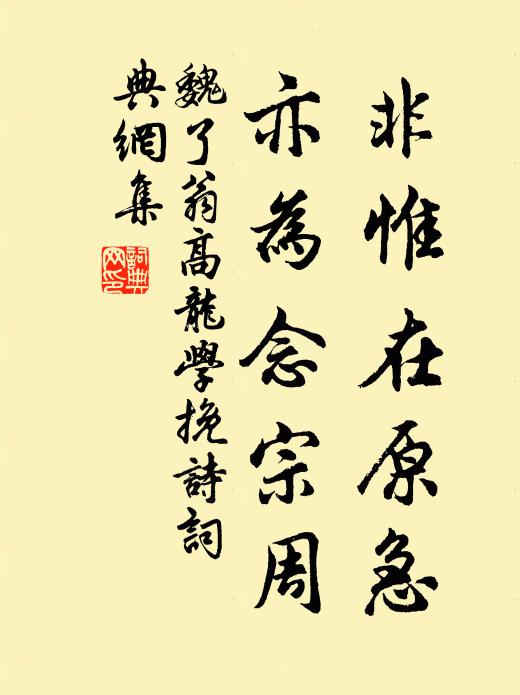 非惟在原急
亦為念宗周
魏了翁高龍學挽詩詞
典網集
詞典
网印